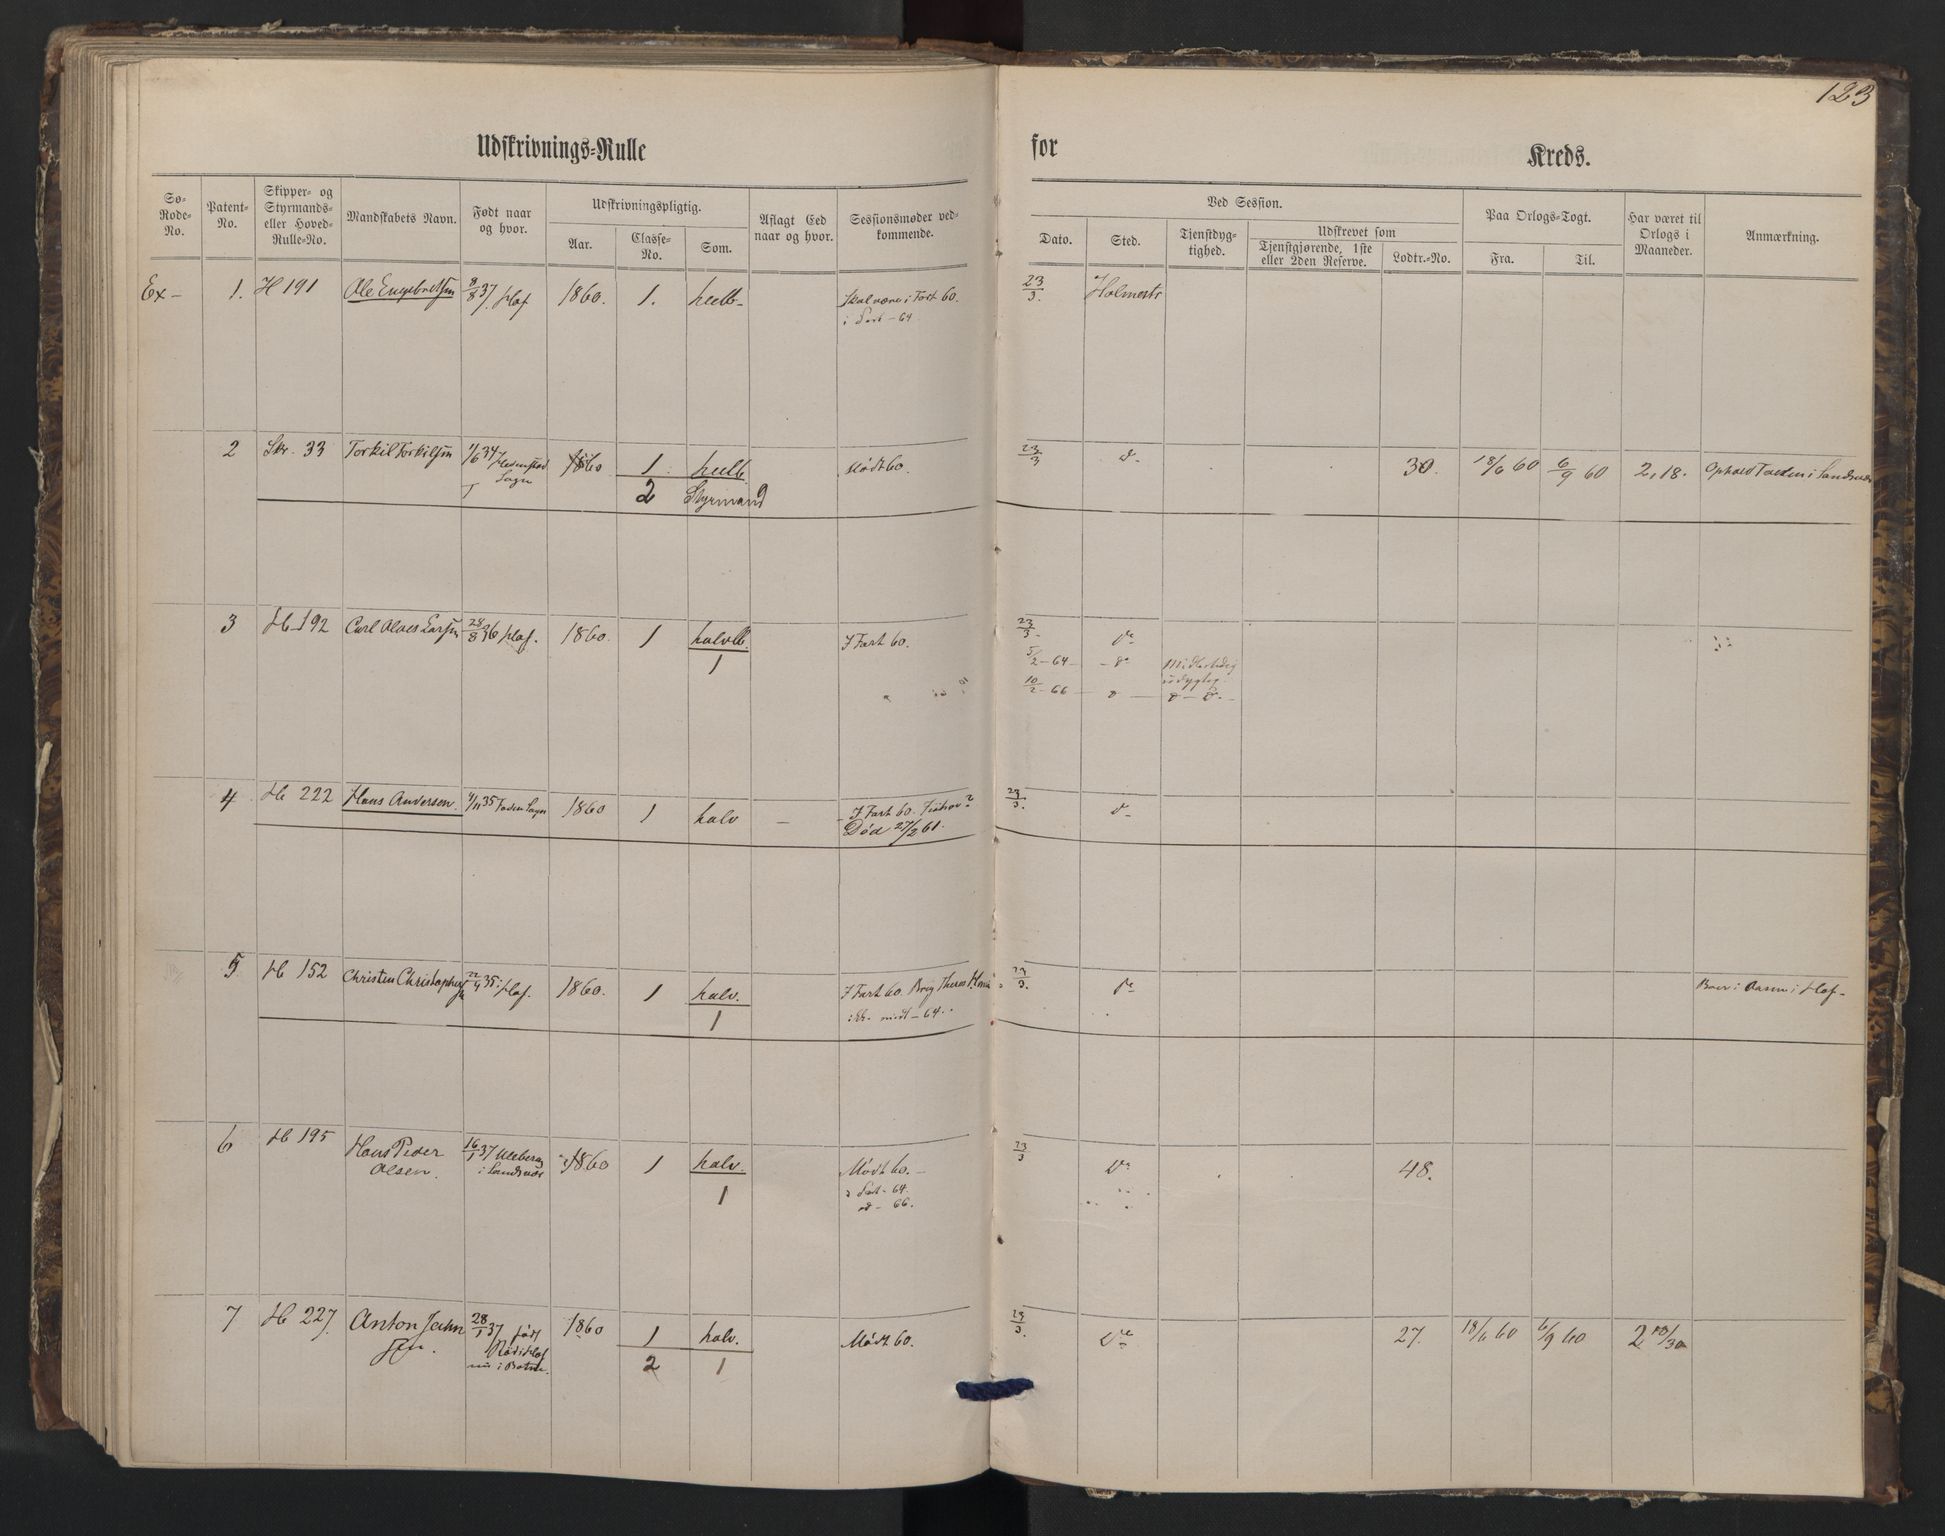 123
Udskrivnings-Rulle for Kreds.
Sø-Rode-No. Patent-No. Skipper- og Styrmands- eller Hoved-Rulle-No. Mandskabets Navn. Født naar og hvor. Udskrivningspligtig. Aar. Classe-No. Som. Aflagt Eed naar og hvor. Sessionsmøder vedkommende.
Ved Session. Dato. Sted. Tjenstdygtighed. Udskrevet som Tjenstgjørende, 1ste eller 2den Reserve. Lodtr.-No. Paa Orlogs-Togt. Fra. Til. Har været til Orlogs i Maaneder. Anmærkning.
Ex - 1. H 191 Ole Engebretsen 8/8 37 Hof 1860. 1. heelb- Skal være i Fart 60. 23/3. Holmestr
i Fart - 64.
2 Skr. 33 Torkil Torkilsen 1/6 34 1860 1 heelb Mødt 60. 23/3 d. 30. 18/6 60 6/9 60 2, 18. Ophold i Sandsvær
Sogn
2 Styrmand
3 H 192 Carl Olaes Larsen 28/8 36 Hof. 1860. 1 halvb. I Fart 60. 23/3. do
1 5/2 - 64 - do Midlertidig
udygtig
10/2 - 66 - d - d - d. -
4 H 222 Hans Andersen. 4/11 35 Sogn 1860 1 halv - I Fart 60. 23/3. d-
Død 27/2 61.
5 H 152 Christen Christopher 22/4 35 Hof. 1860. 1 halv. I Fart 60. Brig 23/3. do Boer i Aasen i Hof-
sen
1 mødt - 64.
6 H 195 Hans Peder 16/1 37 1860 1 halv. Mødt 60. - 23/3 Do 48.
Olsen. i Sandsvær
1 i Fart - 64.
d - 66.
7 H 227. Anton Jahn 28/1 37 født 1860 1 halv. Mødt 60. 23/3. Do 27. 18/6 60 6/9 60 2 18/30
sen. i Hof
nu i Botne. 2 1